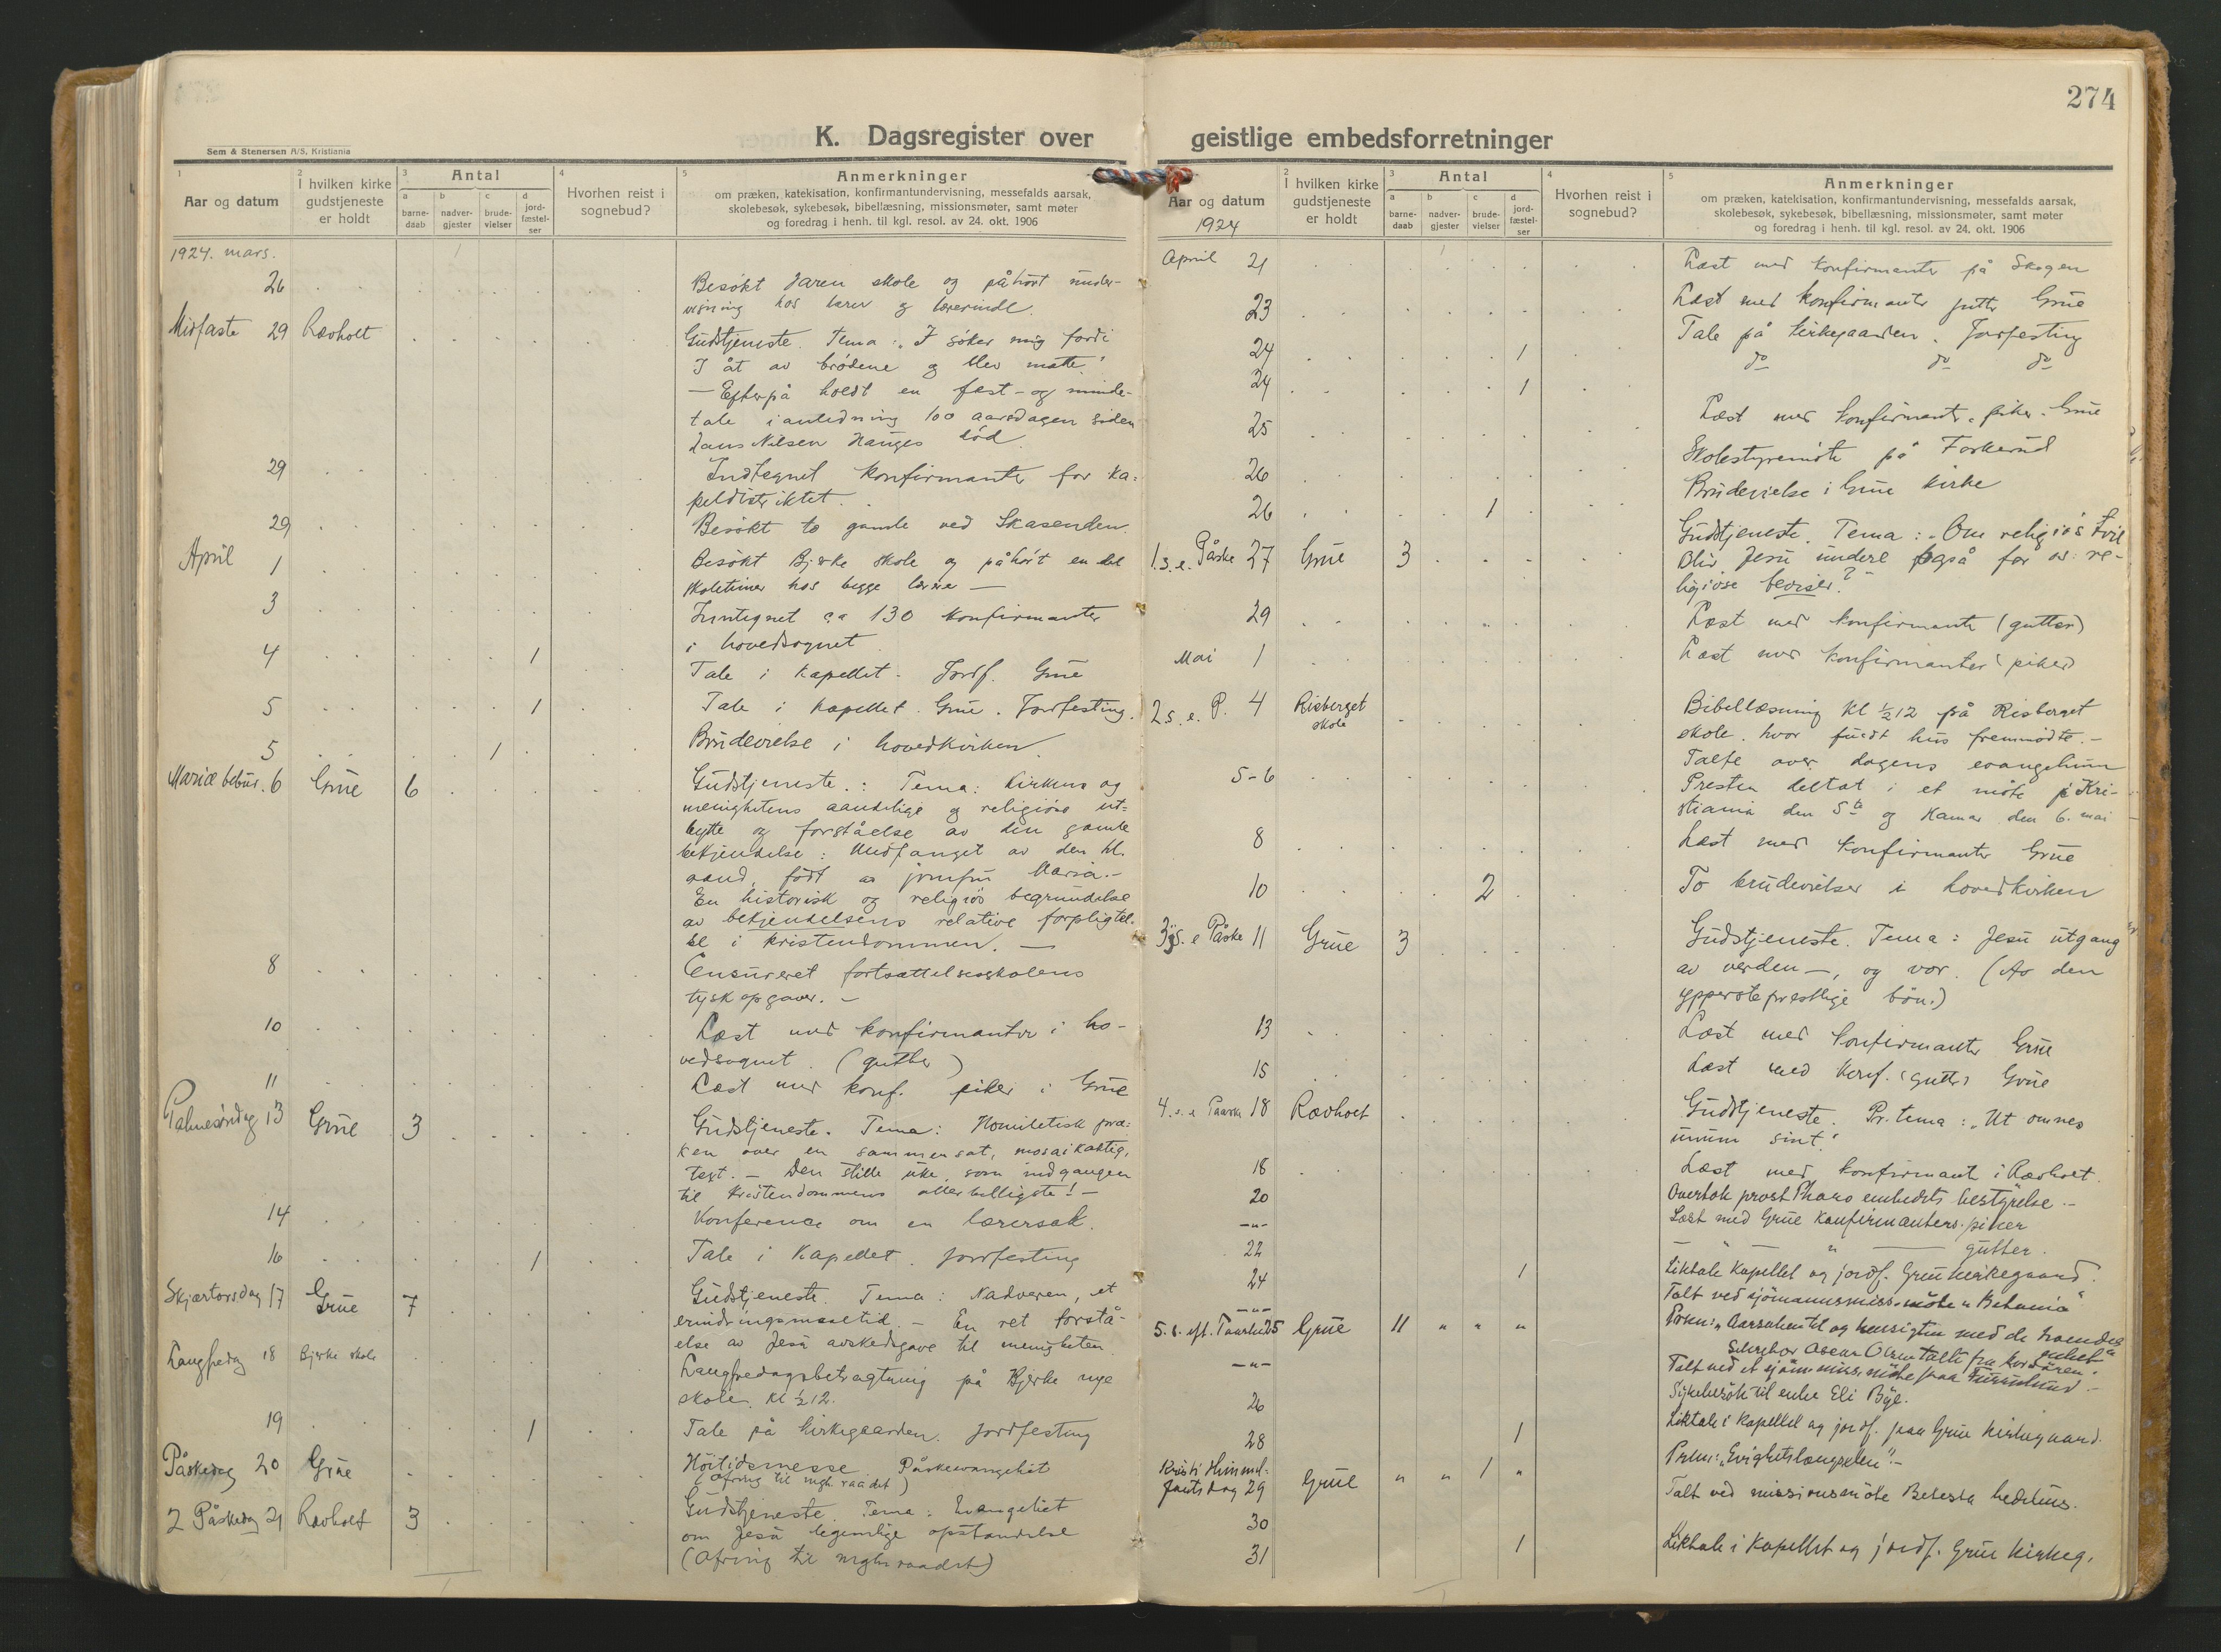 274
K. Dagsregister over geistlige embedsforretninger
Sem & Stenersen A/S, Kristiania
1 Aar og datum
2 I hvilken kirke gudstjeneste er holdt
3 Antal
a barne-daab
b nadver-gjester
c brude-vielser
d jord-fæstel-ser
4 Hvorhen reist i sognebud?
5 Anmerkninger
om præken, katekisation, konfirmantundervisning, messefalds aarsak,
skolebesøk, sykebesøk, bibellæsning, missionsmøter, samt møter
og foredrag i henh. til kgl. resol. av 24. okt. 1906
1924. mars.
26 Besøkt Jaren skole og påhørt under-
visning hos lærer og lærerinde.
Midfaste 29 Rævholt Gudstjeneste. Tema: "I søker mig fordi
I åt av brødene og blev mætte."
— Efterpå holdt en fest- og minde-
tale i anledning 100 aarsdagen siden
Hans Nilsen Hauges død.
29 Indtegnet konfirmanter for ka-
peldistriktet.
29 Besøkt to gamle ved Skasenden.
April 1 Besøkt Bjerke skole og påhørt en del
skoletimer hos begge lærere —
3 Inntegnet ca 130 konfirmanter
i hovedsognet
4 1 Tale i kapellet. Jordf. Grue
5 1 Tale i kapellet. Grue. Jordfesting.
5 1 Brudevielse i hovedkirken.
Mariæ bebud. 6 Grue 6 Gudstjeneste.: Tema: Kirkens og
menighetens aandelige og religiøse ut-
bytte og forståelse av den gamle
bekjendelse: Undfanget av den hl.
aand, født av jomfru Maria.-
En historisk og religiøs begrundelse
av bekjendelsens relative forpligtel-
se i kristendommen. —
8 Censureret fortsættelsesskolens
tyskopgaver. -
10 Læst med konfirmanter i ho-
vedsognet. (gutter)
11 Læst med konf. piker i Grue
Palmesøndag 13 Grue 3 Gudstjeneste. Tema: Homiletisk præ-
ken over en sammensat, mosaikagtig,
text. - Den stille uke, som indgangen
til kristendommens allerhelligste! -
14 Konference om en lærersak.
16 1 Tale i kapellet. Jordfesting
Skjærtorsdag 17 Grue 7 Gudstjeneste. Tema: Nadveren, et
erindringsmaaltid. - En ret forstå-
else av Jesu avskedsgave til menigheten.
Langfredag 18 Bjerke skole Langfredagsbetragtning på Bjerke nye
skole. Kl ½12.
19 1 Tale på kirkegaarden. Jordfesting
Påskedag 20 Grue Høitidsmesse Påskeevangeliet
(Ofring til mgh. raadet)
2 Påskedag 21 Rævholt 3 Gudstjeneste. Tema: Evangeliet
om Jesu legemlige opstandelse
(Ofring til mghraadet)
1 Aar og datum
2 I hvilken kirke gudstjeneste er holdt
3 Antal
a barne-daab
b nadver-gjester
c brude-vielser
d jord-fæstel-ser
4 Hvorhen reist i sognebud?
5 Anmerkninger
om præken, katekisation, konfirmantundervisning, messefalds aarsak,
skolebesøk, sykebesøk, bibellæsning, missionsmøter, samt møter
og foredrag i henh. til kgl. resol. av 24. okt. 1906
1924
April 21 Læst med konfirmanter på Skogen
23 Læst med konfirmanter gutter Grue
24 1 Tale på kirkegaarden. Jordfesting
24 1 do do do
25 Læst med konfirmanter. piker. Grue
26 Skolestyremøte på
26 1 Brudevielse i Grue kirke
1 s. e. Påske 27 Grue 3 Gudstjeneste. Tema: "Om religiøs tvil
Blir Jesu undere også for os re-
ligiøse beviser?"
29 Læst med konfirmanter (gutter)
Mai 1 Læst med konfirmanter (piker)
2 s. e. P. 4 Risberget skole Bibellæsning Kl ½12 på Risberget
skole. hvor fuldt hus fremmødte. -
Talte over dagens evangelium
5-6 Presten deltat i et møte i Kri-
stiania den 5te og Hamar den 6. mai
8 Læst med konfirmanter Grue
10 2 To brudevielser i hovedkirken
3 s. e Påske 11 Grue 3 Gudstjeneste. Tema: Jesu utgang
av verden —, og vor. (Av den
ypperstepræstlige bøn.)
13 Læst med konfirmanter Grue
15 Læst med konf. (gutter) Grue
4. s. e Paaske 18 Rævholt Gudstjeneste. Pr. tema: "Ut omnes
unum sint".
18 Læst med konfirmant i Rævholt.
20 Overtok prost Pharo embedets bestyrelse. -
-"- Læst med Grue konfirmanters. piker
22 — " — " — gutter.
24 1 Liktale kapellet og jordf. Grue kirkegaard.
-"- Talt ved sjømannsmiss. møte "Betania"
5. s. eft. Paaske 25 Grue 11 " " " Præken: "Aarsaken til og hensigten med de
Sekretær Oscar Olsen talte fra kordøren.
-"- Talt ved et sjømmiss. møte paa
26 Sykebesøk til enke Eli
28 1 Liktale i kapellet og jordf. paa Grue kirkegaard.
Kristi Himmel-
fartsdag 29 Grue " " 1 " Præken: "Evighetslængselen". -
30 Talt ved missionsmøte bedehus.
31 1 Liktale i kapellet og jordf. Grue kirkeg.